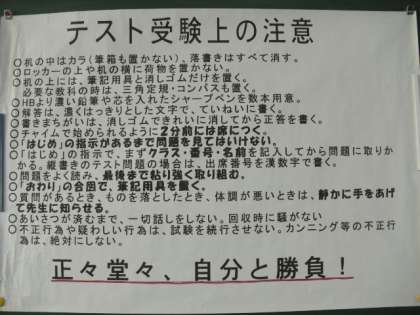 テスト受験上の注意
○机の中はカラ(筆箱も置かない)、落書きはすべて消す。
○ロッカーの上や机の横に荷物を置かない。
○机の上には、筆記用具と消しゴムだけを置く。
必要な教科の時は、三角定規・コンパスも置く。
○HBより濃い鉛筆や芯を入れたシャープペンを数本用意。
○解答は、濃くはっきりとした文字で、ていねいに書く。
○書きまちがいは、消しゴムできれいに消してから正答を書く。
○チャイムで始められるように2分前には席につく。
○「はじめ」の指示があるまで問題を見てはいけない。
○「はじめ」の指示で、まずクラス・番号・名前を記入してから問題に取りか
かる。縦書きのテスト問題の場合は、出席番号を漢数字で書く。
○問題をよく読み、最後まで粘り強く取り組む。
○「おわり」の合図で、筆記用具を置く。
○質問があるとき、ものを落としたとき、体調が悪いときは、静かに手をあげ
て先生に知らせる。
○あいさつが済むまで、一切話しをしない。回収時に騒がない
○不正行為や疑わしい行為は、試験を続行させない。カンニング等の不正行
為は、絶対にしない。
正々堂々、自分と勝負!